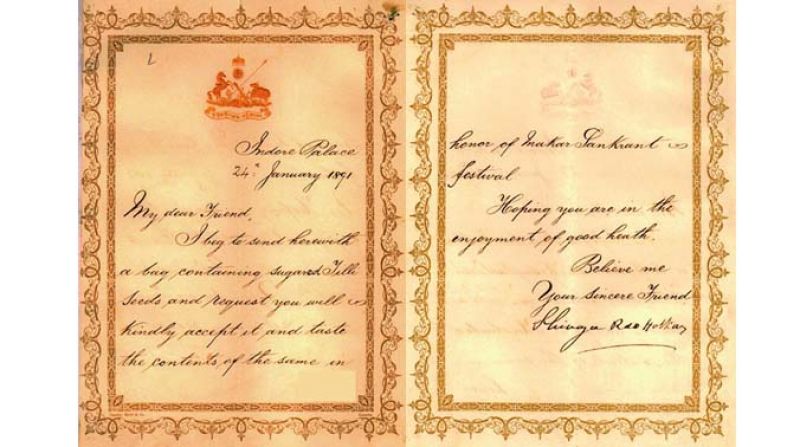 Indore Palace
24th January 1891
My dear Friend,
I beg to send herewith
a bag containing sugared Tilli
seeds and request you will
kindly accept it and taste
the contents of the same in
honor of Makar Sankrant
festival
Hoping you are in the
enjoyment of good heath.
Believe me
Your sincere Friend
Shivaji Rao Holkar